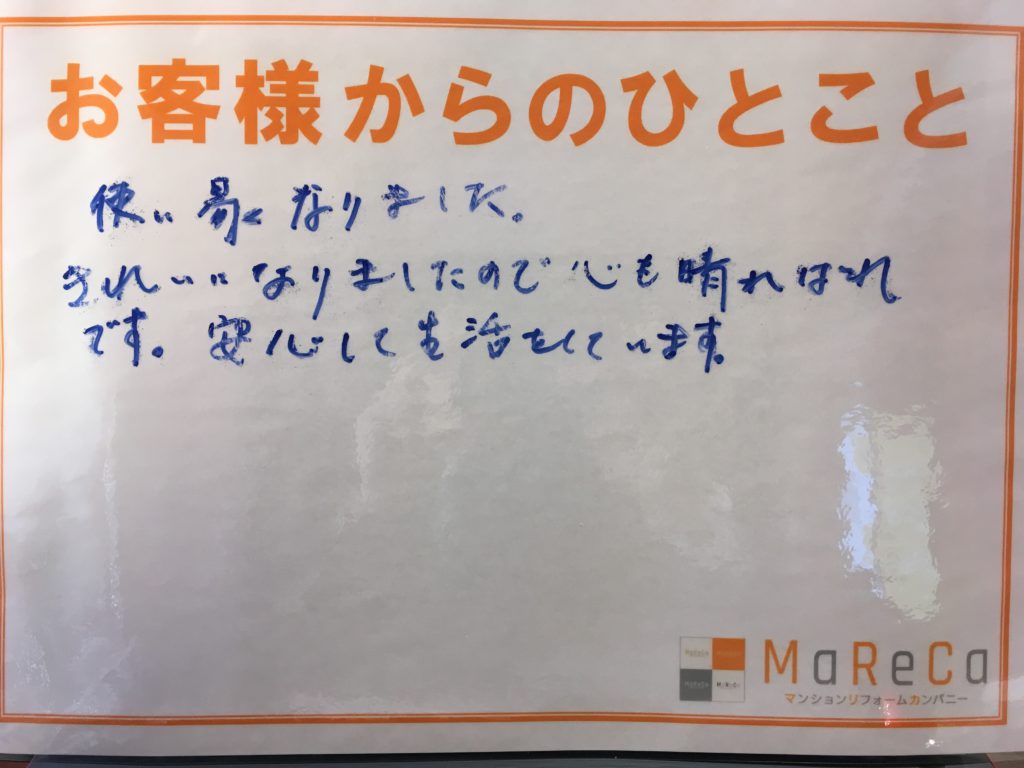 お客様からのひとこと
使い易くなりました。
きれいになりましたので心も晴ればれ
です。安心して生活をしています。
MaReCa
マンションリフォームカンパニー